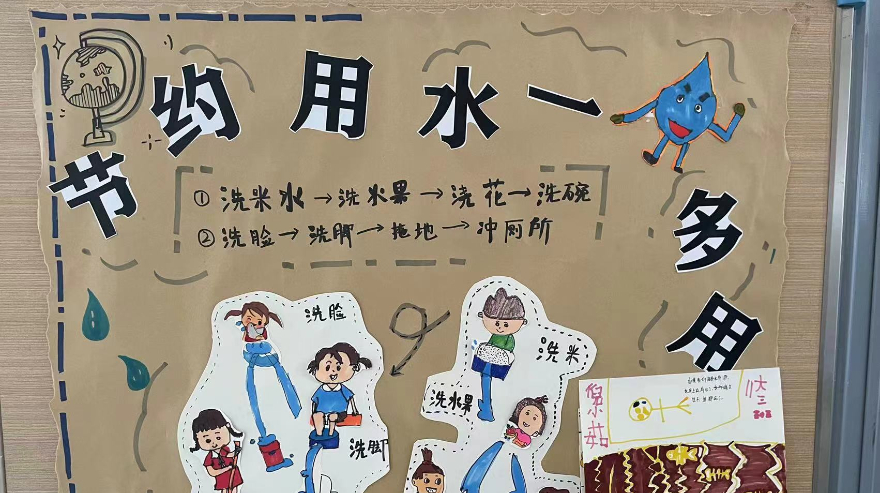 节约用水一水多用
①洗米水→洗水果→浇花→洗碗
②洗脸→洗脚→拖地→冲厕所
洗脸
洗米
洗水果
洗脚